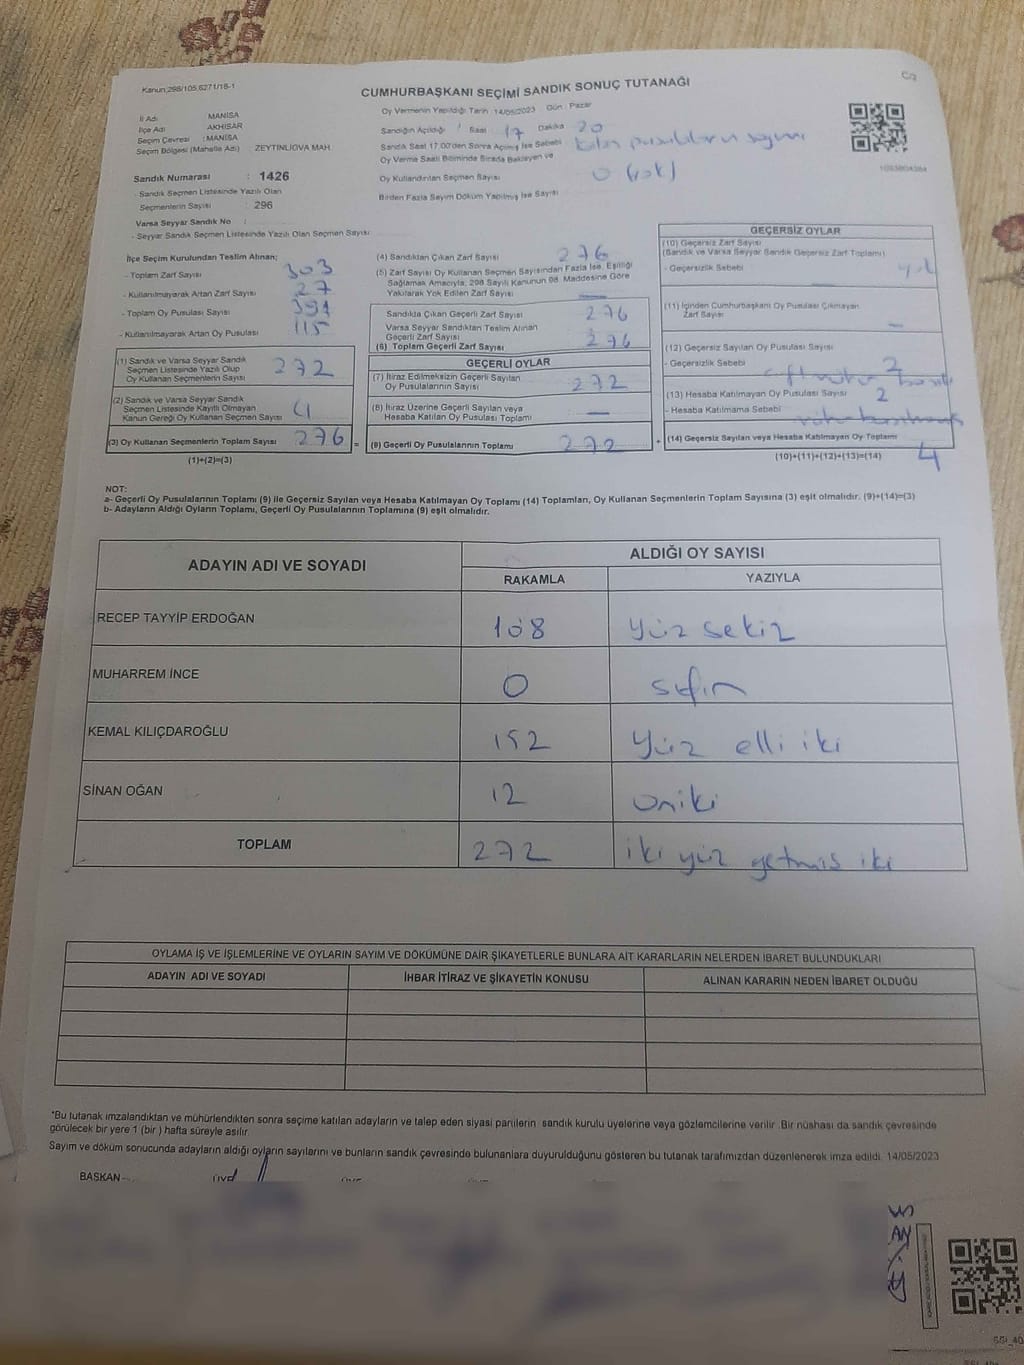 Kanun;298/105,6271/18-1
CUMHURBAŞKANI SEÇİMİ SANDIK SONUÇ TUTANAĞI
C/2
İl Adı MANİSA
İlçe Adı AKHİSAR
Seçim Çevresi : MANİSA
Seçim Bölgesi (Mahalle Adı) : ZEYTİNLİOVA MAH.
Sandık Numarası : 1426
- Sandık Seçmen Listesinde Yazılı Olan
Seçmenlerin Sayısı : 296
Varsa Seyyar Sandık No :
- Seyyar Sandık Seçmen Listesinde Yazılı Olan Seçmen Sayısı
Oy Vermenin Yapıldığı Tarih : 14/05/2023 Gün : Pazar
Sandığın Açıldığı Saat 17 Dakika 20
Sandık Saat 17:00'den Sonra Açılmış İse Sebebi
Oy Verme Saati Bitiminde Sırada Bekleyen ve
Oy Kullandırılan Seçmen Sayısı 0 (yok)
Birden Fazla Sayım Döküm Yapılmış İse Sayısı
İlçe Seçim Kurulundan Teslim Alınan;
- Toplam Zarf Sayısı 303
- Kullanılmayarak Artan Zarf Sayısı 27
- Toplam Oy Pusulası Sayısı 391
- Kullanılmayarak Artan Oy Pusulası 115
(1) Sandık ve Varsa Seyyar Sandık
Seçmen Listesinde Yazılı Olup
Oy Kullanan Seçmenlerin Sayısı 272
(2) Sandık ve Varsa Seyyar Sandık
Seçmen Listesinde Kayıtlı Olmayan
Kanun Gereği Oy Kullanan Seçmen Sayısı 4
(3) Oy Kullanan Seçmenlerin Toplam Sayısı 276 =
(1)+(2)=(3)
(4) Sandıktan Çıkan Zarf Sayısı 276
(5) Zarf Sayısı Oy Kullanan Seçmen Sayısından Fazla İse, Eşitliği
Sağlamak Amacıyla, 298 Sayılı Kanunun 98. Maddesine Göre
Yakılarak Yok Edilen Zarf Sayısı —
Sandıkta Çıkan Geçerli Zarf Sayısı 276
Varsa Seyyar Sandıktan Teslim Alınan
Geçerli Zarf Sayısı
(6) Toplam Geçerli Zarf Sayısı 276
GEÇERLİ OYLAR
(7) İtiraz Edilmeksizin Geçerli Sayılan
Oy Pusulalarının Sayısı 272
(8) İtiraz Üzerine Geçerli Sayılan veya
Hesaba Katılan Oy Pusulası Toplamı —
(9) Geçerli Oy Pusulalarının Toplamı 272 +
GEÇERSİZ OYLAR
(10) Geçersiz Zarf Sayısı
(Sandık ve Varsa Seyyar Sandık Geçersiz Zarf Toplamı)
- Geçersizlik Sebebi yok
(11) İçinden Cumhurbaşkanı Oy Pusulası Çıkmayan
Zarf Sayısı —
(12) Geçersiz Sayılan Oy Pusulası Sayısı 2
- Geçersizlik Sebebi
(13) Hesaba Katılmayan Oy Pusulası Sayısı 2
- Hesaba Katılmama Sebebi
(14) Geçersiz Sayılan veya Hesaba Katılmayan Oy Toplamı 4
(10)+(11)+(12)+(13)=(14)
NOT:
a- Geçerli Oy Pusulalarının Toplamı (9) ile Geçersiz Sayılan veya Hesaba Katılmayan Oy Toplamı (14) Toplamları, Oy Kullanan Seçmenlerin Toplam Sayısına (3) eşit olmalıdır. (9)+(14)=(3)
b- Adayların Aldığı Oyların Toplamı, Geçerli Oy Pusulalarının Toplamına (9) eşit olmalıdır.
ADAYIN ADI VE SOYADI ALDIĞI OY SAYISI
RAKAMLA YAZIYLA
RECEP TAYYİP ERDOĞAN 108 yüz sekiz
MUHARREM İNCE 0 sıfır
KEMAL KILIÇDAROĞLU 152 yüz elli iki
SİNAN OĞAN 12 oniki
TOPLAM 272 iki yüz yetmiş iki
OYLAMA İŞ VE İŞLEMLERİNE VE OYLARIN SAYIM VE DÖKÜMÜNE DAİR ŞİKAYETLERLE BUNLARA AİT KARARLARIN NELERDEN İBARET BULUNDUKLARI
ADAYIN ADI VE SOYADI İHBAR İTİRAZ VE ŞİKAYETİN KONUSU ALINAN KARARIN NEDEN İBARET OLDUĞU
*Bu tutanak imzalandıktan ve mühürlendikten sonra seçime katılan adayların ve talep eden siyasi partilerin sandık kurulu üyelerine veya gözlemcilerine verilir. Bir nüshası da sandık çevresinde
görülecek bir yere 1 (bir) hafta süreyle asılır.
Sayım ve döküm sonucunda adayların aldığı oyların sayılarını ve bunların sandık çevresinde bulunanlara duyurulduğunu gösteren bu tutanak tarafımızdan düzenlenerek imza edildi. 14/05/2023
BAŞKAN